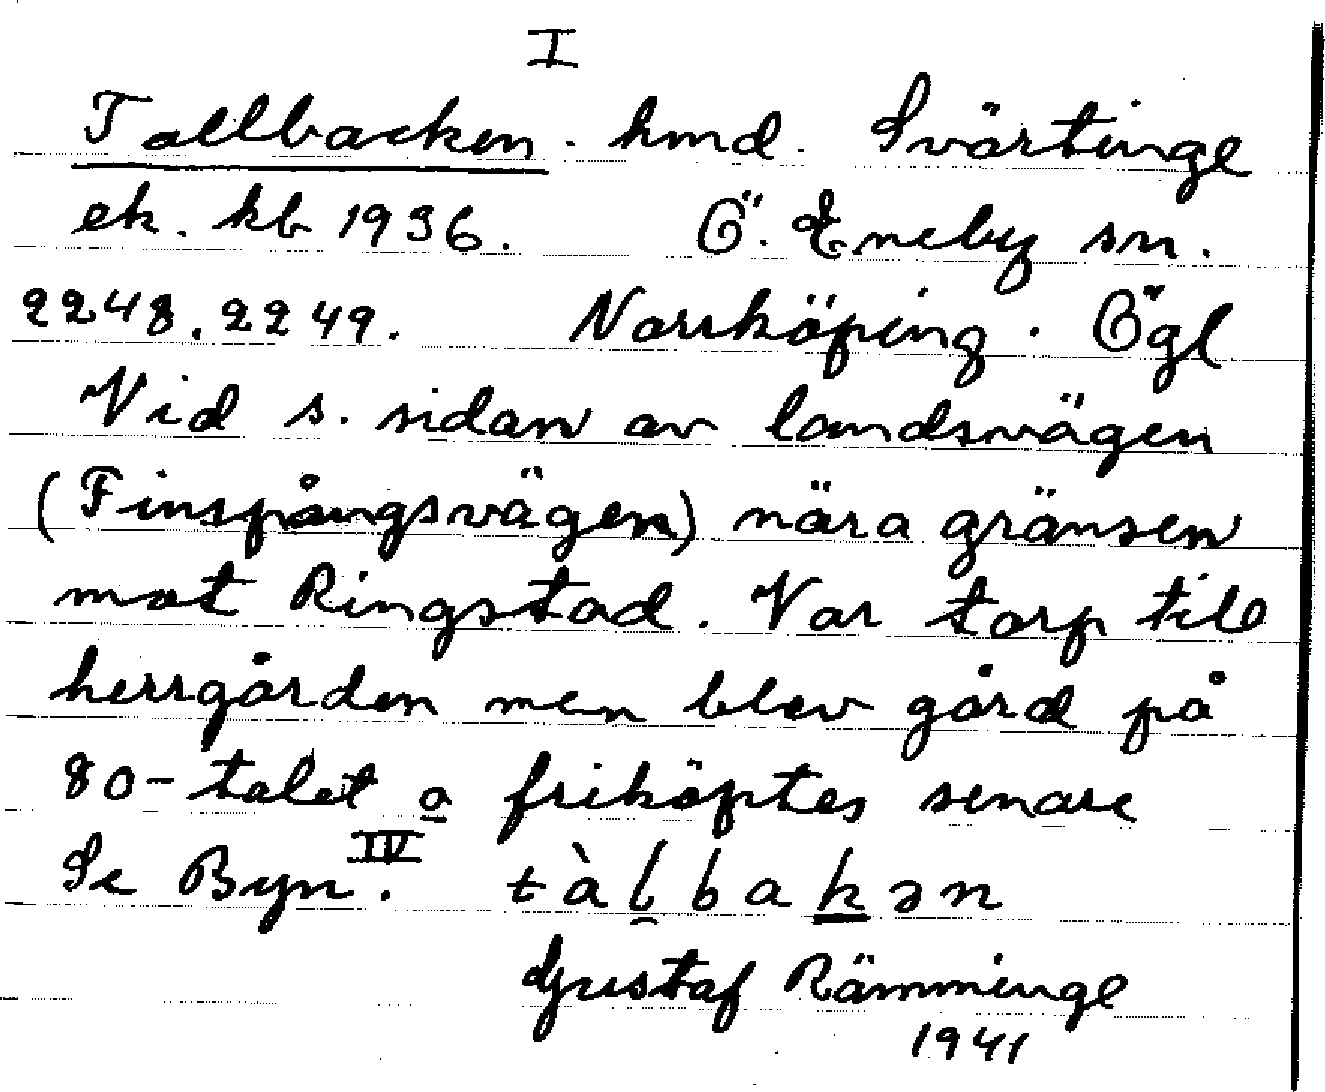 I
Tallbacken. hmd. Svärtinge
ek. kb 1936. Ö. Eneby sn.
2248. 2249. Norrköping. Ögl
Vid s. sidan av landsvägen
(Finspångsvägen) nära gränsen
mot Ringstad. Var torp till
herrgården men blev gård på
80-talet o friköptes senare
Se Byn IV. tàl̯bakən
Gustaf Rämminge
1941